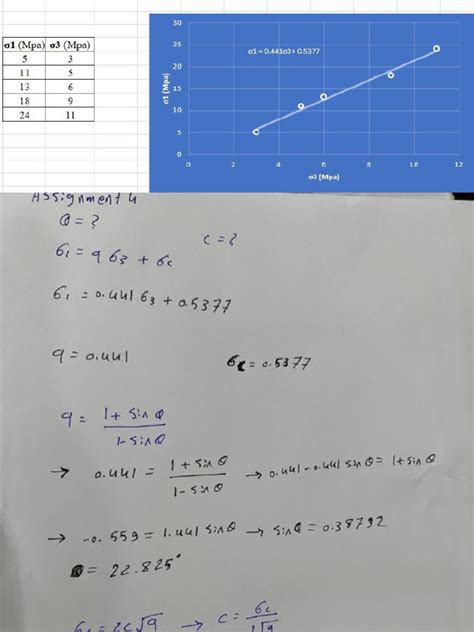 σ1 (Mpa) σ3 (Mpa)
5 3
11 5
13 6
18 9
24 11
30
25
20
15
10
5
0
σ1 (Mpa)
σ1 = 0.441σ3+ 0.5377
0 2 4 6 8 10 12
σ3 (Mpa)
Assignment 4
Ø = ?
C = ?
σ1 = q σ3 + σc
σ1 = 0.441 σ3 + 0.5377
q = 0.441
σc = 0.5377
q = 1 + Sin Ø / 1 - Sin Ø
→ 0.441 = 1 + Sin Ø / 1 - Sin Ø → 0.441 - 0.441 Sin Ø = 1 + Sin Ø
→ -0.559 = 1.441 Sin Ø → Sin Ø = 0.38792
Ø = 22.825°
σc = 2C√q → C = σc / 2√q